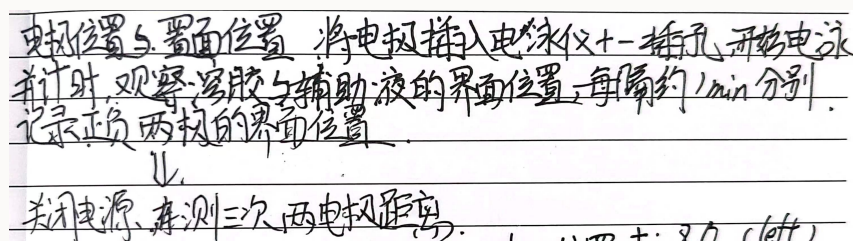 电极位置与界面位置 将电极插入电泳仪+-插孔,开始电泳
并计时,观察溶胶与辅助液的界面位置,每隔约1min分别
记录正负两极的界面位置.
⇓.
关闭电源、再测三次两电极距离.
位置 8.0 (left)